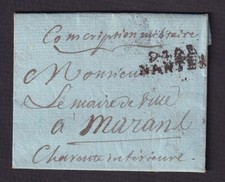 Conscription militaire
Monsieur
NANTES
Le maire de ville
à Marans
Charente inférieure